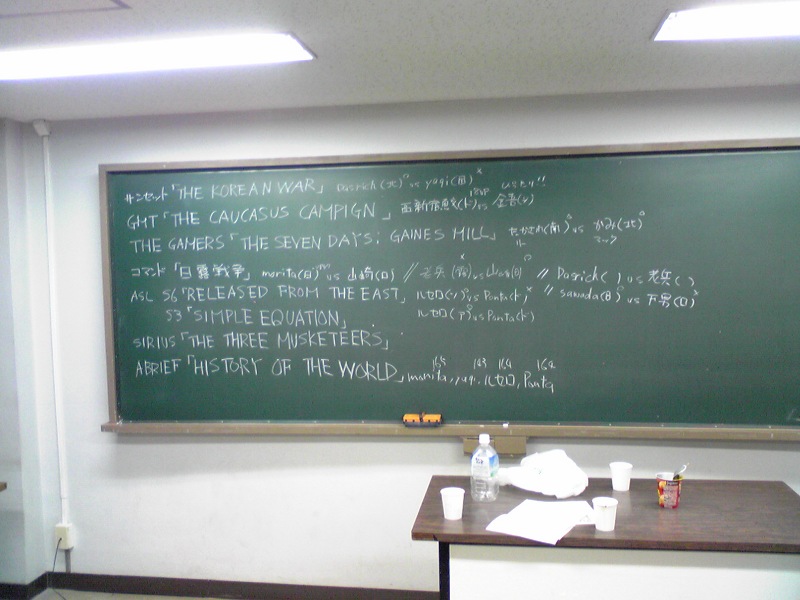 サンセット「THE KOREAN WAR」 Pasrick(北) vs yagi(国)
GMT「THE CAUCASUS CAMPAIGN」 (ド) vs (ソ)
THE GAMERS「THE SEVEN DAYS: GAINES MILL」 (南) vs (北)
コマンド「日露戦争」 morita(日) vs 山崎(ロ) // 老兵 vs // Pasrick( ) vs 老兵( )
ASL 56「RELEASED FROM THE EAST」 ルセロ(ソ) vs Panta(ド) // sawada(日) vs 下男(ロ)
53「SIMPLE EQUATION」 ルセロ vs Panta(ド)
SIRIUS「THE THREE MUSKETEERS」
ABRIEF「HISTORY OF THE WORLD」 morita, yagi, ルセロ, Panta